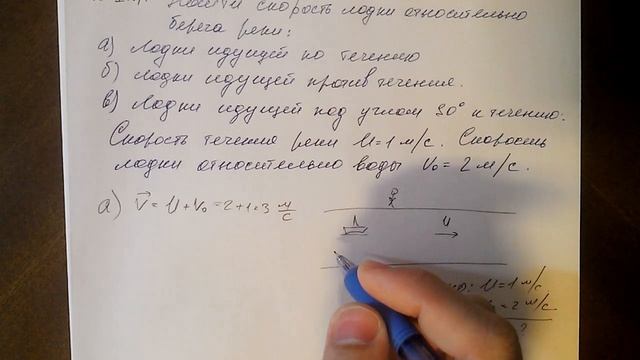 Найти скорость лодки относительно
берега реки:
а) Лодки идущей по течению
б) Лодки идущей против течения.
в) Лодки идущей под углом 90° к течению.
Скорость течения реки U=1 м/с. Скорость
лодки относительно воды V₀=2 м/с.
а) V⃗=U+V₀=2+1=3 м/с
U
U=1 м/с
=2 м/с
?